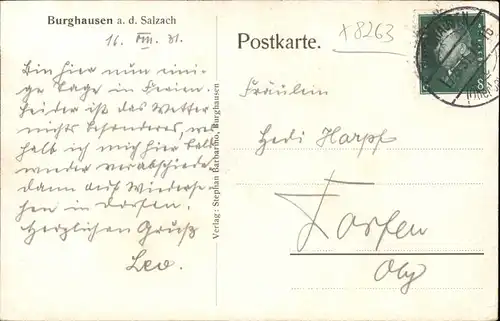 Burghausen a. d. Salzach
16. VIII. 31.
Bin hier nun eini-
ge Tage in Ferien.
Leider ist das Wetter
nichts besonderes, wes-
halb ich mich hier bald
wieder verabschiede.
Dann auf Wiederse-
hen in Dorfen.
Herzlichen Gruß
Leo.
Verlag: Stephan Barbarino, Burghausen
Postkarte.
x8263
Fräulein
Hedi Harpf
Dorfen
Obb